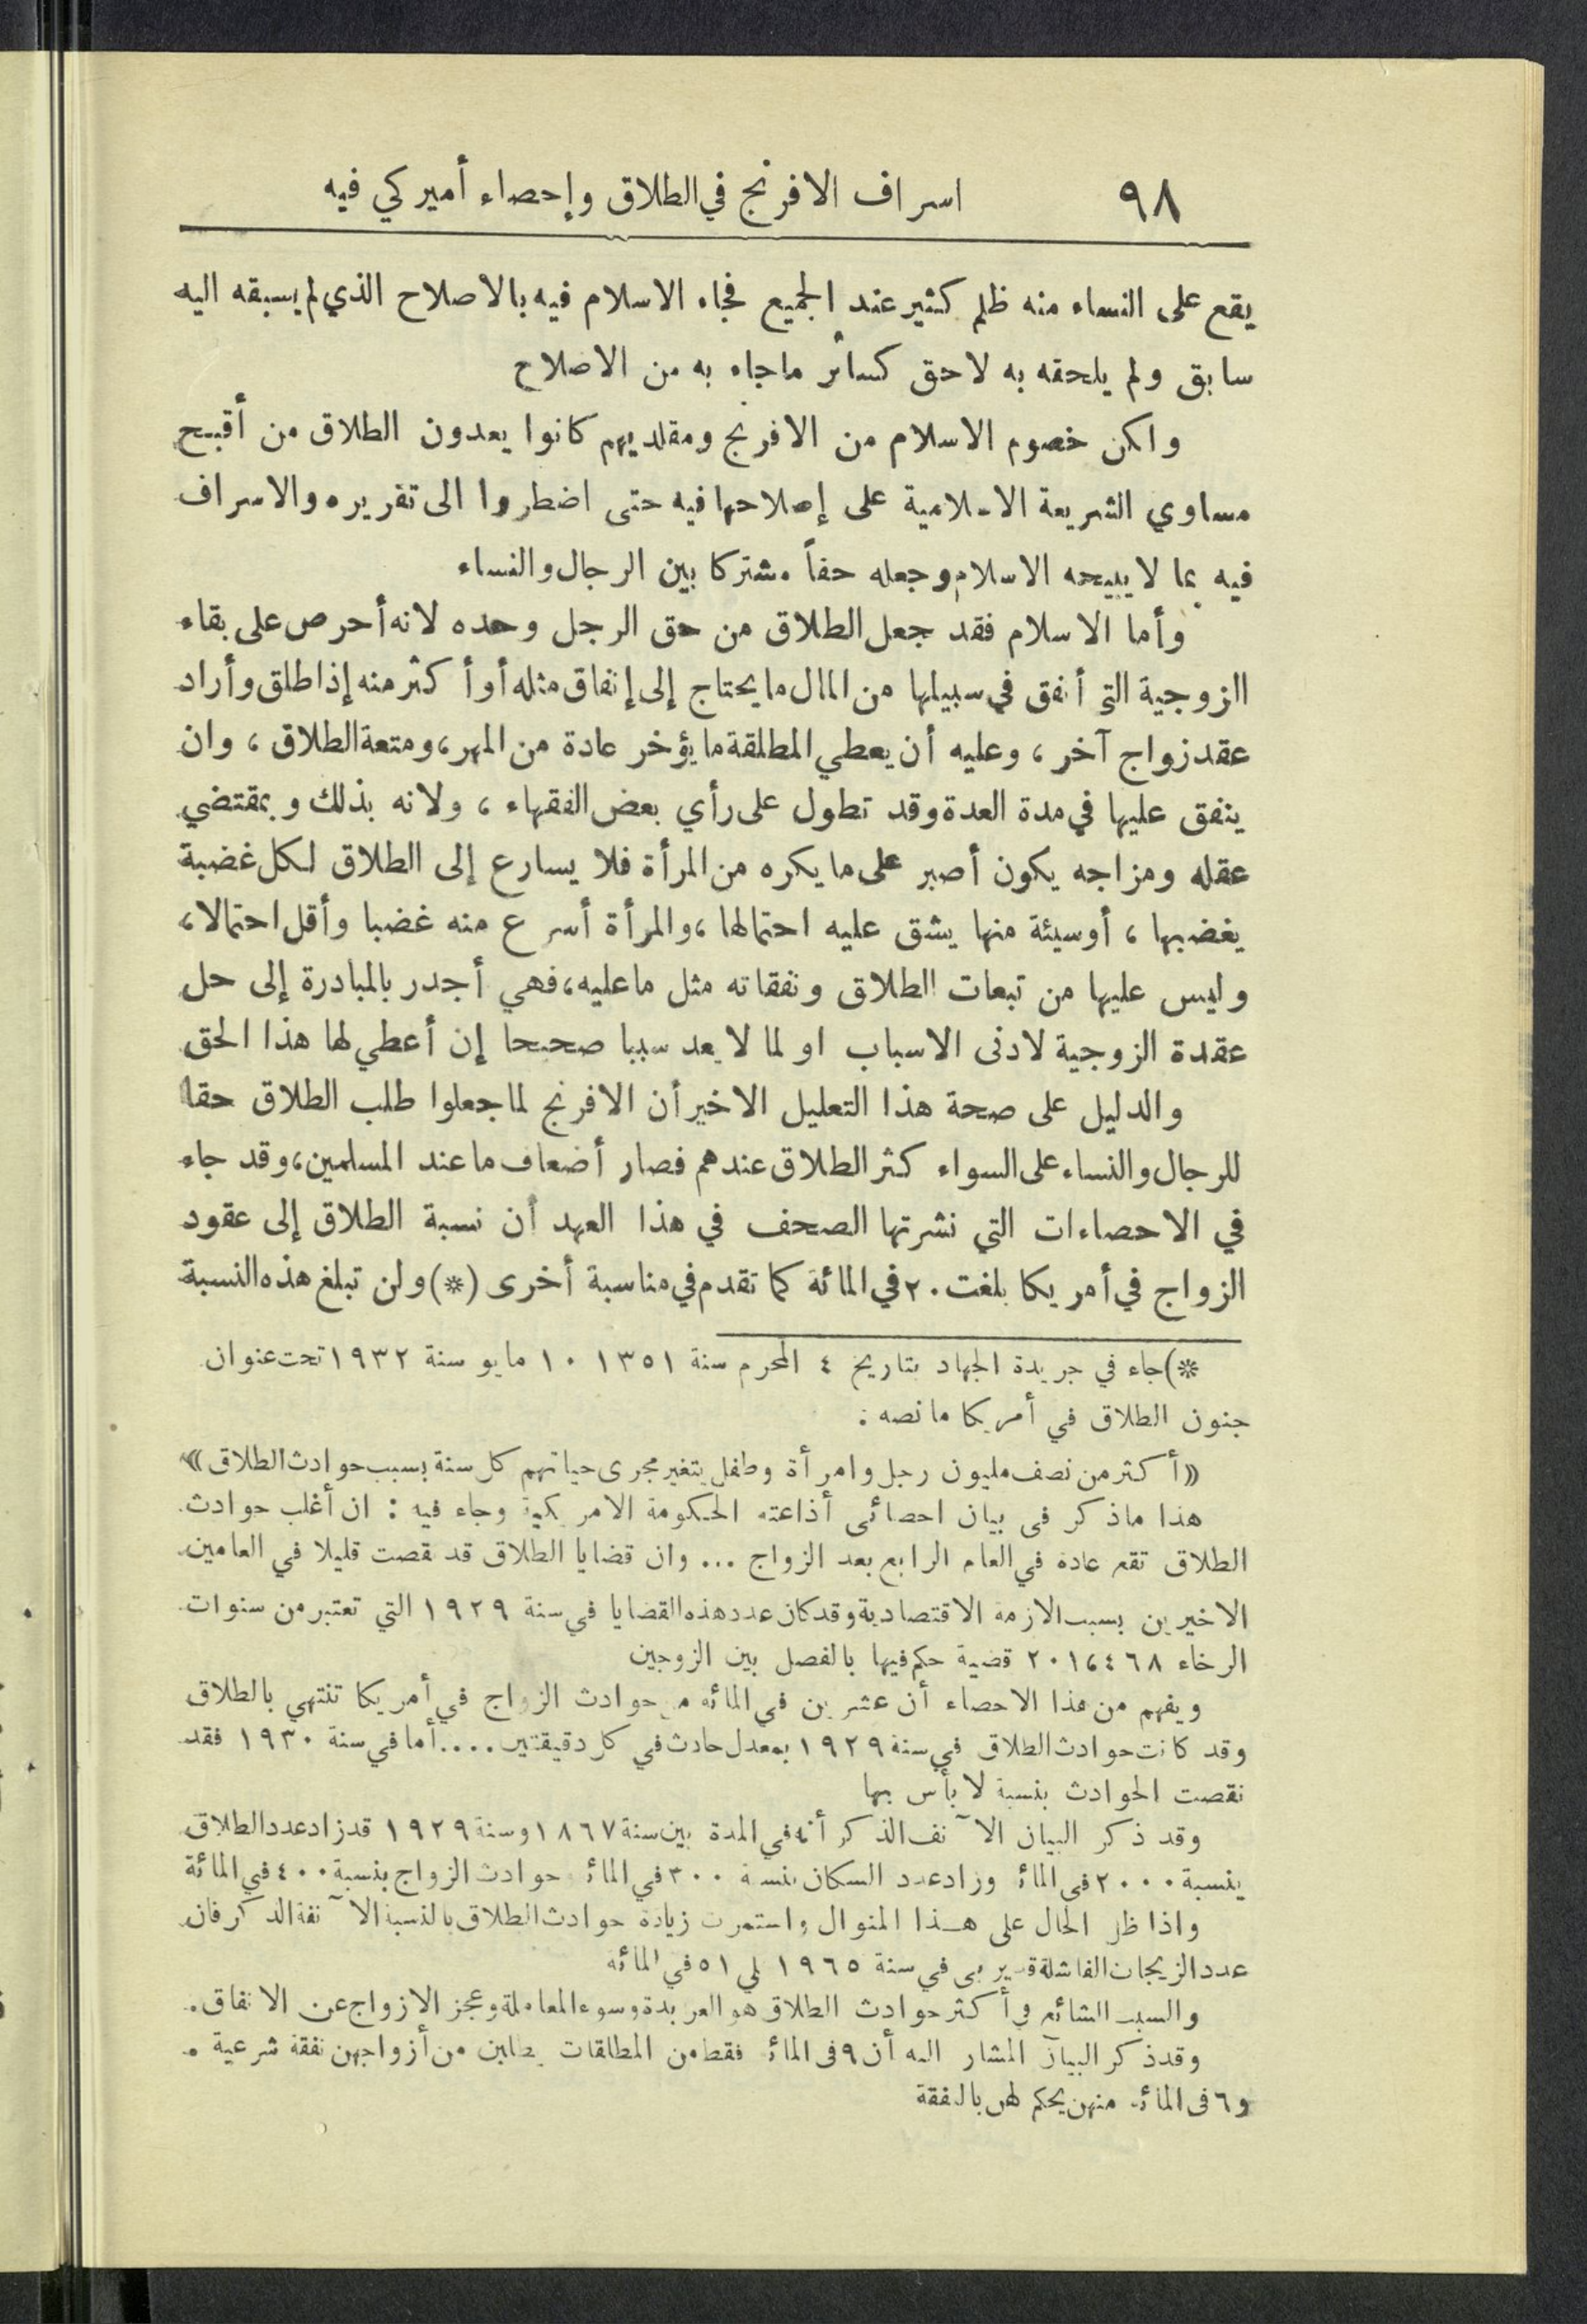 ٩٨ اسراف الافرنج في الطلاق وإحصاء أميركي فيه
يقع على النساء منه ظلم كثير عند الجميع فجاء الاسلام فيه بالاصلاح الذي لم يسبقه اليه
سابق ولم يلحقه به لاحق كسائر ماجاء به من الاصلاح
ولكن خصوم الاسلام من الافرنج ومقلديهم كانوا يعدون الطلاق من أقبح
مساوي الشريعة الاسلامية على إصلاحها فيه حتى اضطروا الى تقريره والاسراف
فيه بما لا يبيحه الاسلام وجعله حقاً مشتركا بين الرجال والنساء
وأما الاسلام فقد جعل الطلاق من حق الرجل وحده لانه أحرص على بقاء
الزوجية التي أنفق في سبيلها من المال ما يحتاج إلى إنفاق مثله أو أكثر منه إذا طلق وأراد
عقد زواج آخر ، وعليه أن يعطي المطلقة ما يؤخر عادة من المهر، ومتعة الطلاق ، وان
ينفق عليها في مدة العدة وقد تطول على رأي بعض الفقهاء ، ولانه بذلك وبمقتضي
عقله ومزاجه يكون أصبر على ما يكره من المرأة فلا يسارع إلى الطلاق لكل غضبة
يغضبها ، أو سيئة منها يشق عليه احتمالها ، والمرأة أسرع منه غضبا وأقل احتمالا ،
وليس عليها من تبعات الطلاق ونفقاته مثل ما عليه ، فهي أجدر بالمبادرة إلى حل
عقدة الزوجية لادنى الاسباب او لما لا يعد سببا صحيحا إن أعطي لها هذا الحق
والدليل على صحة هذا التعليل الاخير أن الافرنج لما جعلوا طلب الطلاق حقا
للرجال والنساء على السواء كثر الطلاق عندهم فصار أضعاف ما عند المسلمين، وقد جاء
في الاحصاءات التي نشرتها الصحف في هذا العهد أن نسبة الطلاق إلى عقود
الزواج في أمريكا بلغت ٢٠ في المائة كما تقدم في مناسبة أخرى (*) ولن تبلغ هذه النسبة
*) جاء في جريدة الجهاد بتاريخ ٤ المحرم سنة ١٣٥١ ١٠ مايو سنة ١٩٣٢ تحت عنوان
جنون الطلاق في أمريكا ما نصه :
« أكثر من نصف مليون رجل وامرأة وطفل يتغير مجرى حياتهم كل سنة بسبب حوادث الطلاق »
هذا ماذكر فى بيان احصائى أذاعته الحكومة الامريكية وجاء فيه : ان أغلب حوادث
الطلاق تقع عادة في العام الرابع بعد الزواج ... وان قضايا الطلاق قد نقصت قليلا في العامين
الاخيرين بسبب الازمة الاقتصادية وقد كان عدد هذه القضايا في سنة ١٩٢٩ التي تعتبر من سنوات
الرخاء ٢٠١،٤٦٨ قضية حكم فيها بالفصل بين الزوجين
ويفهم من هذا الاحصاء أن عشرين في المائه من حوادث الزواج في أمريكا تنتهي بالطلاق
وقد كانت حوادث الطلاق في سنة ١٩٢٩ بمعدل حادث في كل دقيقتين .... أما في سنة ١٩٣٠ فقد
نقصت الحوادث بنسبة لا بأس بها
وقد ذكر البيان الآنف الذكر أنه في المدة بين سنة ١٨٦٧ وسنة ١٩٢٩ قد زاد عدد الطلاق
بنسبة ٢٠٠٠ فى المائة وزاد عدد السكان بنسبة ٣٠٠ في المائة حوادث الزواج بنسبة ٤٠٠ في المائة
واذا ظل الحال على هذا المنوال واستمرت زيادة حوادث الطلاق بالنسبة الآنفة الذكر فان
عدد الزيجات الفاشلة قد يربى في سنة ١٩٦٥ على ٥١ في المائه
والسبب الشائع في أكثر حوادث الطلاق هو العربدة وسوء المعاملة وعجز الازواج عن الانفاق .
وقد ذكر البيان المشار اليه أن ٩ فى المائة فقط من المطلقات يطلبن من أزواجهن نفقة شرعية .
و ٦ فى المائة منهن يحكم لهن بالنفقة